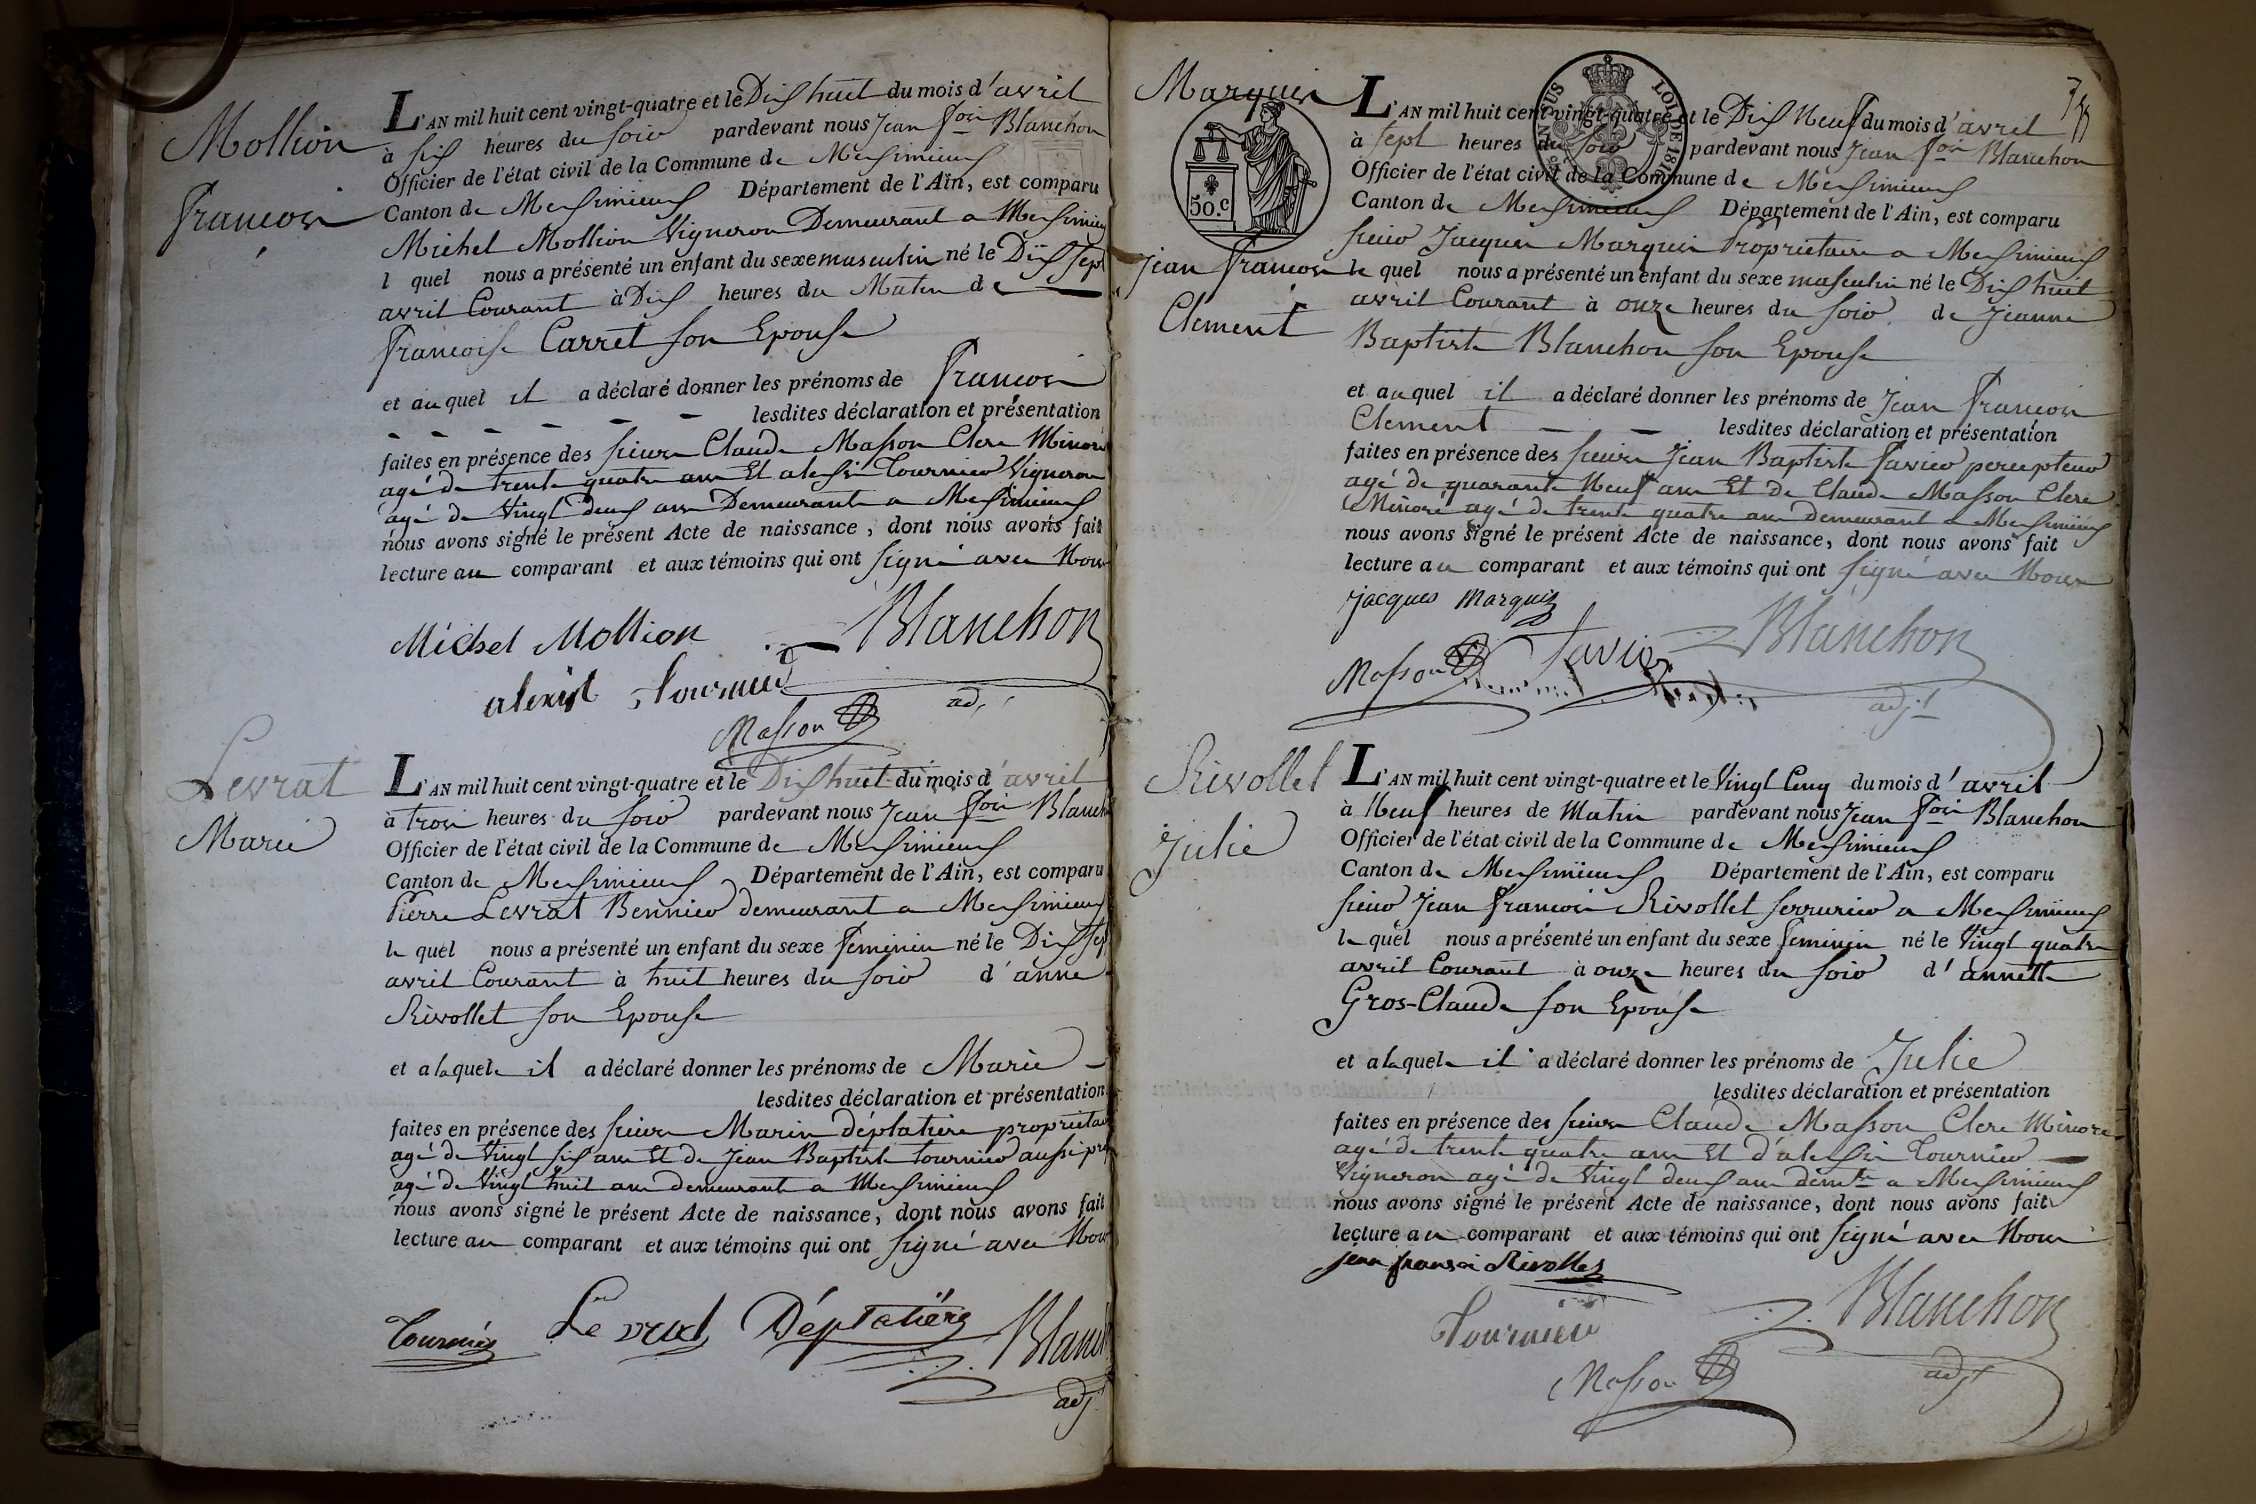 Mollion
François
L'AN mil huit cent vingt-quatre et le Dix huit du mois d'avril
à six heures du soir pardevant nous Jean fois Blanchon
Officier de l'état civil de la Commune de Meximieux
Canton de Meximieux Département de l'Ain, est comparu
Michel Mollion Vigneron Demeurant a Meximieux
l quel nous a présenté un enfant du sexe masculin né le Dix sept
avril Courant à Dix heures du Matin de
francoise Carret son Epouse
et au quel il a déclaré donner les prénoms de françois
lesdites déclaration et présentation
faites en présence des sieurs Claude Masson Clerc Minoré
agé de trente quatre ans Et alexis Tournier Vigneron
agé de Vingt deux ans Demeurants a Meximieux
nous avons signé le présent Acte de naissance, dont nous avons fait
lecture au comparant et aux témoins qui ont signé avec Nous
Michel Mollion Blanchon
alexist Tournier
adj
Masson
Levrat
Marie
L'AN mil huit cent vingt-quatre et le Dix huit du mois d'avril
à trois heures du soir pardevant nous Jean fois Blanch
Officier de l'état civil de la Commune de Meximieux
Canton de Meximieux Département de l'Ain, est comparu
Pierre Levrat Bennier demeurant a Meximieux
le quel nous a présenté un enfant du sexe feminin né le Dix sep
avril Courant à huit heures du soir d'anne
Rivollet son Epouse
et a laquele il a déclaré donner les prénoms de Marie
lesdites déclaration et présentation
faites en présence des sieurs Marin Déplatière propriétai
agé de Vingt six ans Et de Jean Baptiste tournier aussi pro
agé de Vingt huit ans demeurants a Meximieux
nous avons signé le présent Acte de naissance, dont nous avons fait
lecture au comparant et aux témoins qui ont signé avec Nou
Tournier Le vrat Déplatière Blanch
adj
Marquis
Jean François
Clement
50.c
LOI DE 181
SUS
3
L'AN mil huit cent vingt-quatre et le Dix Neuf du mois d'avril
à sept heures du soir pardevant nous Jean fois Blanchon
Officier de l'état civil de la Commune de Meximieux
Canton de Meximieux Département de l'Ain, est comparu
sieur Jacques Marquis Propriétaire a Meximieux
le quel nous a présenté un enfant du sexe masculin né le Dix huit
avril Courant à onze heures du soir de Jeanne
Baptiste Blanchon son Epouse
et au quel il a déclaré donner les prénoms de Jean françois
Clement lesdites déclaration et présentation
faites en présence des sieurs Jean Baptiste Favier percepteur
agé de quarante Neuf ans Et de Claude Masson Clerc
Minoré agé de trente quatre ans demeurant a Meximieux
nous avons signé le présent Acte de naissance, dont nous avons fait
lecture au comparant et aux témoins qui ont signé avec Nous
jacques Marquis
Masson Favier Blanchon
adjt
Rivollet
Julie
L'AN mil huit cent vingt-quatre et le Vingt Cinq du mois d'avril
à Neuf heures de Matin pardevant nous Jean fois Blanchon
Officier de l'état civil de la Commune de Meximieux
Canton de Meximieux Département de l'Ain, est comparu
sieur Jean françois Rivollet serrurier a Meximieux
le quel nous a présenté un enfant du sexe feminin né le Vingt quatre
avril Courant à onze heures du soir d'annette
Gros-Claude son Epouse
et a laquele il a déclaré donner les prénoms de Julie
lesdites déclaration et présentation
faites en présence des sieurs Claude Masson Clerc Minoré
agé de trente quatre ans Et d'alexis Tournier
Vigneron agé de Vingt deux ans demts a Meximieux
nous avons signé le présent Acte de naissance, dont nous avons fait
lecture au comparant et aux témoins qui ont signé avec Nous
jean fransoi Rivollet
Tournier Blanchon
Masson adjt